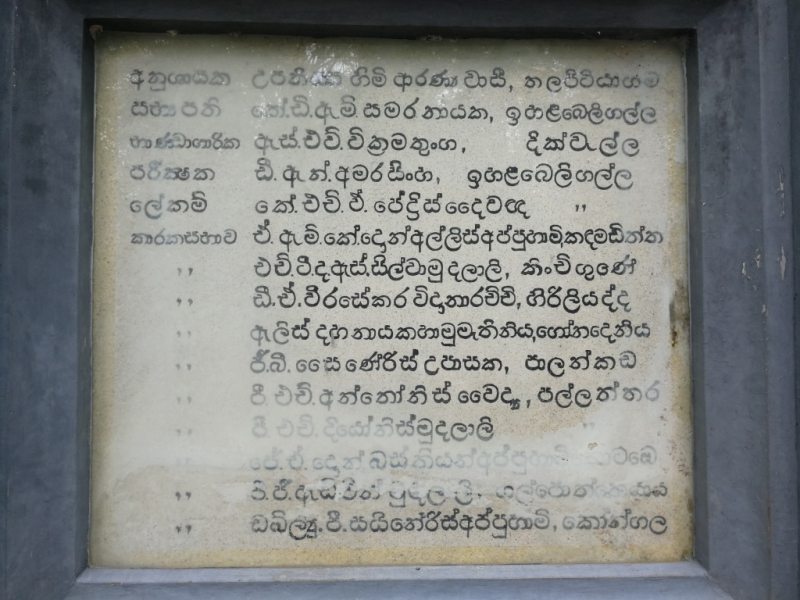 අනුශායක උපනිස්ස හිමි ආරණ්‍ය වාසී, තලපිටියාගම
සභාපති කේ.ඩී.ඇම්. සමරනායක, ඉහළබෙලිගල්ල
භාණ්ඩාගාරික ඇස්.එච්. වික්‍රමතුංග, දික්වැල්ල
පරීක්ෂක ඩී. ඇන්. අමරසිංහ, ඉහළබෙලිගල්ල
ලේකම් කේ. එච්. ඒ. පේද්‍රිස් දෛවඥ ,,
කාරකසභාව ඒ. ඇම්. කේ. දොන් අල්ලිස් අප්පුහාමි,
,, එච්. ටී. ද. ඇස්. සිල්වා මුදලාලි, කිංචිගුණේ
,, ඩී. ඒ. වීරසේකර විදානාරච්චි, හිරිලියද්ද
,, ඇලිස් දහනායක හාමුමැතිනිය, ගෝනදෙනිය
,, ජී. බී. සෛණේරිස් උපාසක, පාලන්කඩ
,, පී. එච්. අන්තෝනිස් වෛද්‍ය, පල්ලත්තර
,, පී. එච්. දියෝනිස් මුදලාලි ,,
ජේ. ඒ. දොන් බස්තියන් අප්පුහාමි
,, මුදලාලි.
,, ඩබ්ල්‍යු. පී. සයිනේරිස් අප්පුහාමි, කෝන්ගල